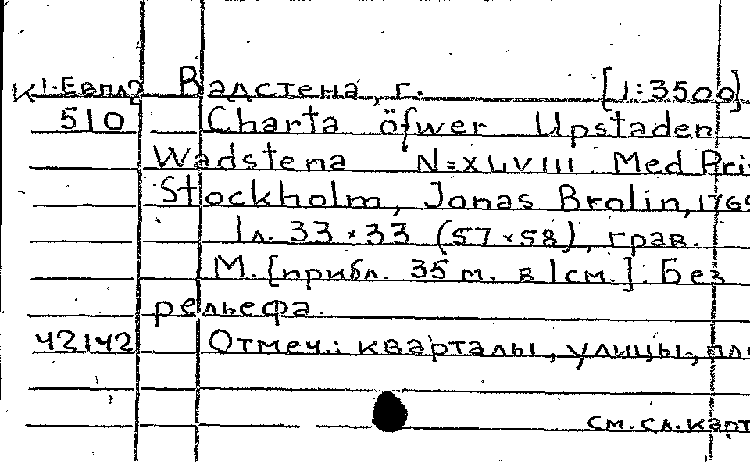 К 1-Евпл2 Вадстена, г. [1:3500]
510 Charta öfwer Upstaden
Wadstena N=XLVIII. Med Pri
Stockholm, Jonas Brolin, 1769
1 л. 33×33 (57×58), грав.
М. [прибл. 35 м. в 1 см.]. Без
рельефа.
42142 Отмеч.: кварталы, улицы, пл
см. сл. карт